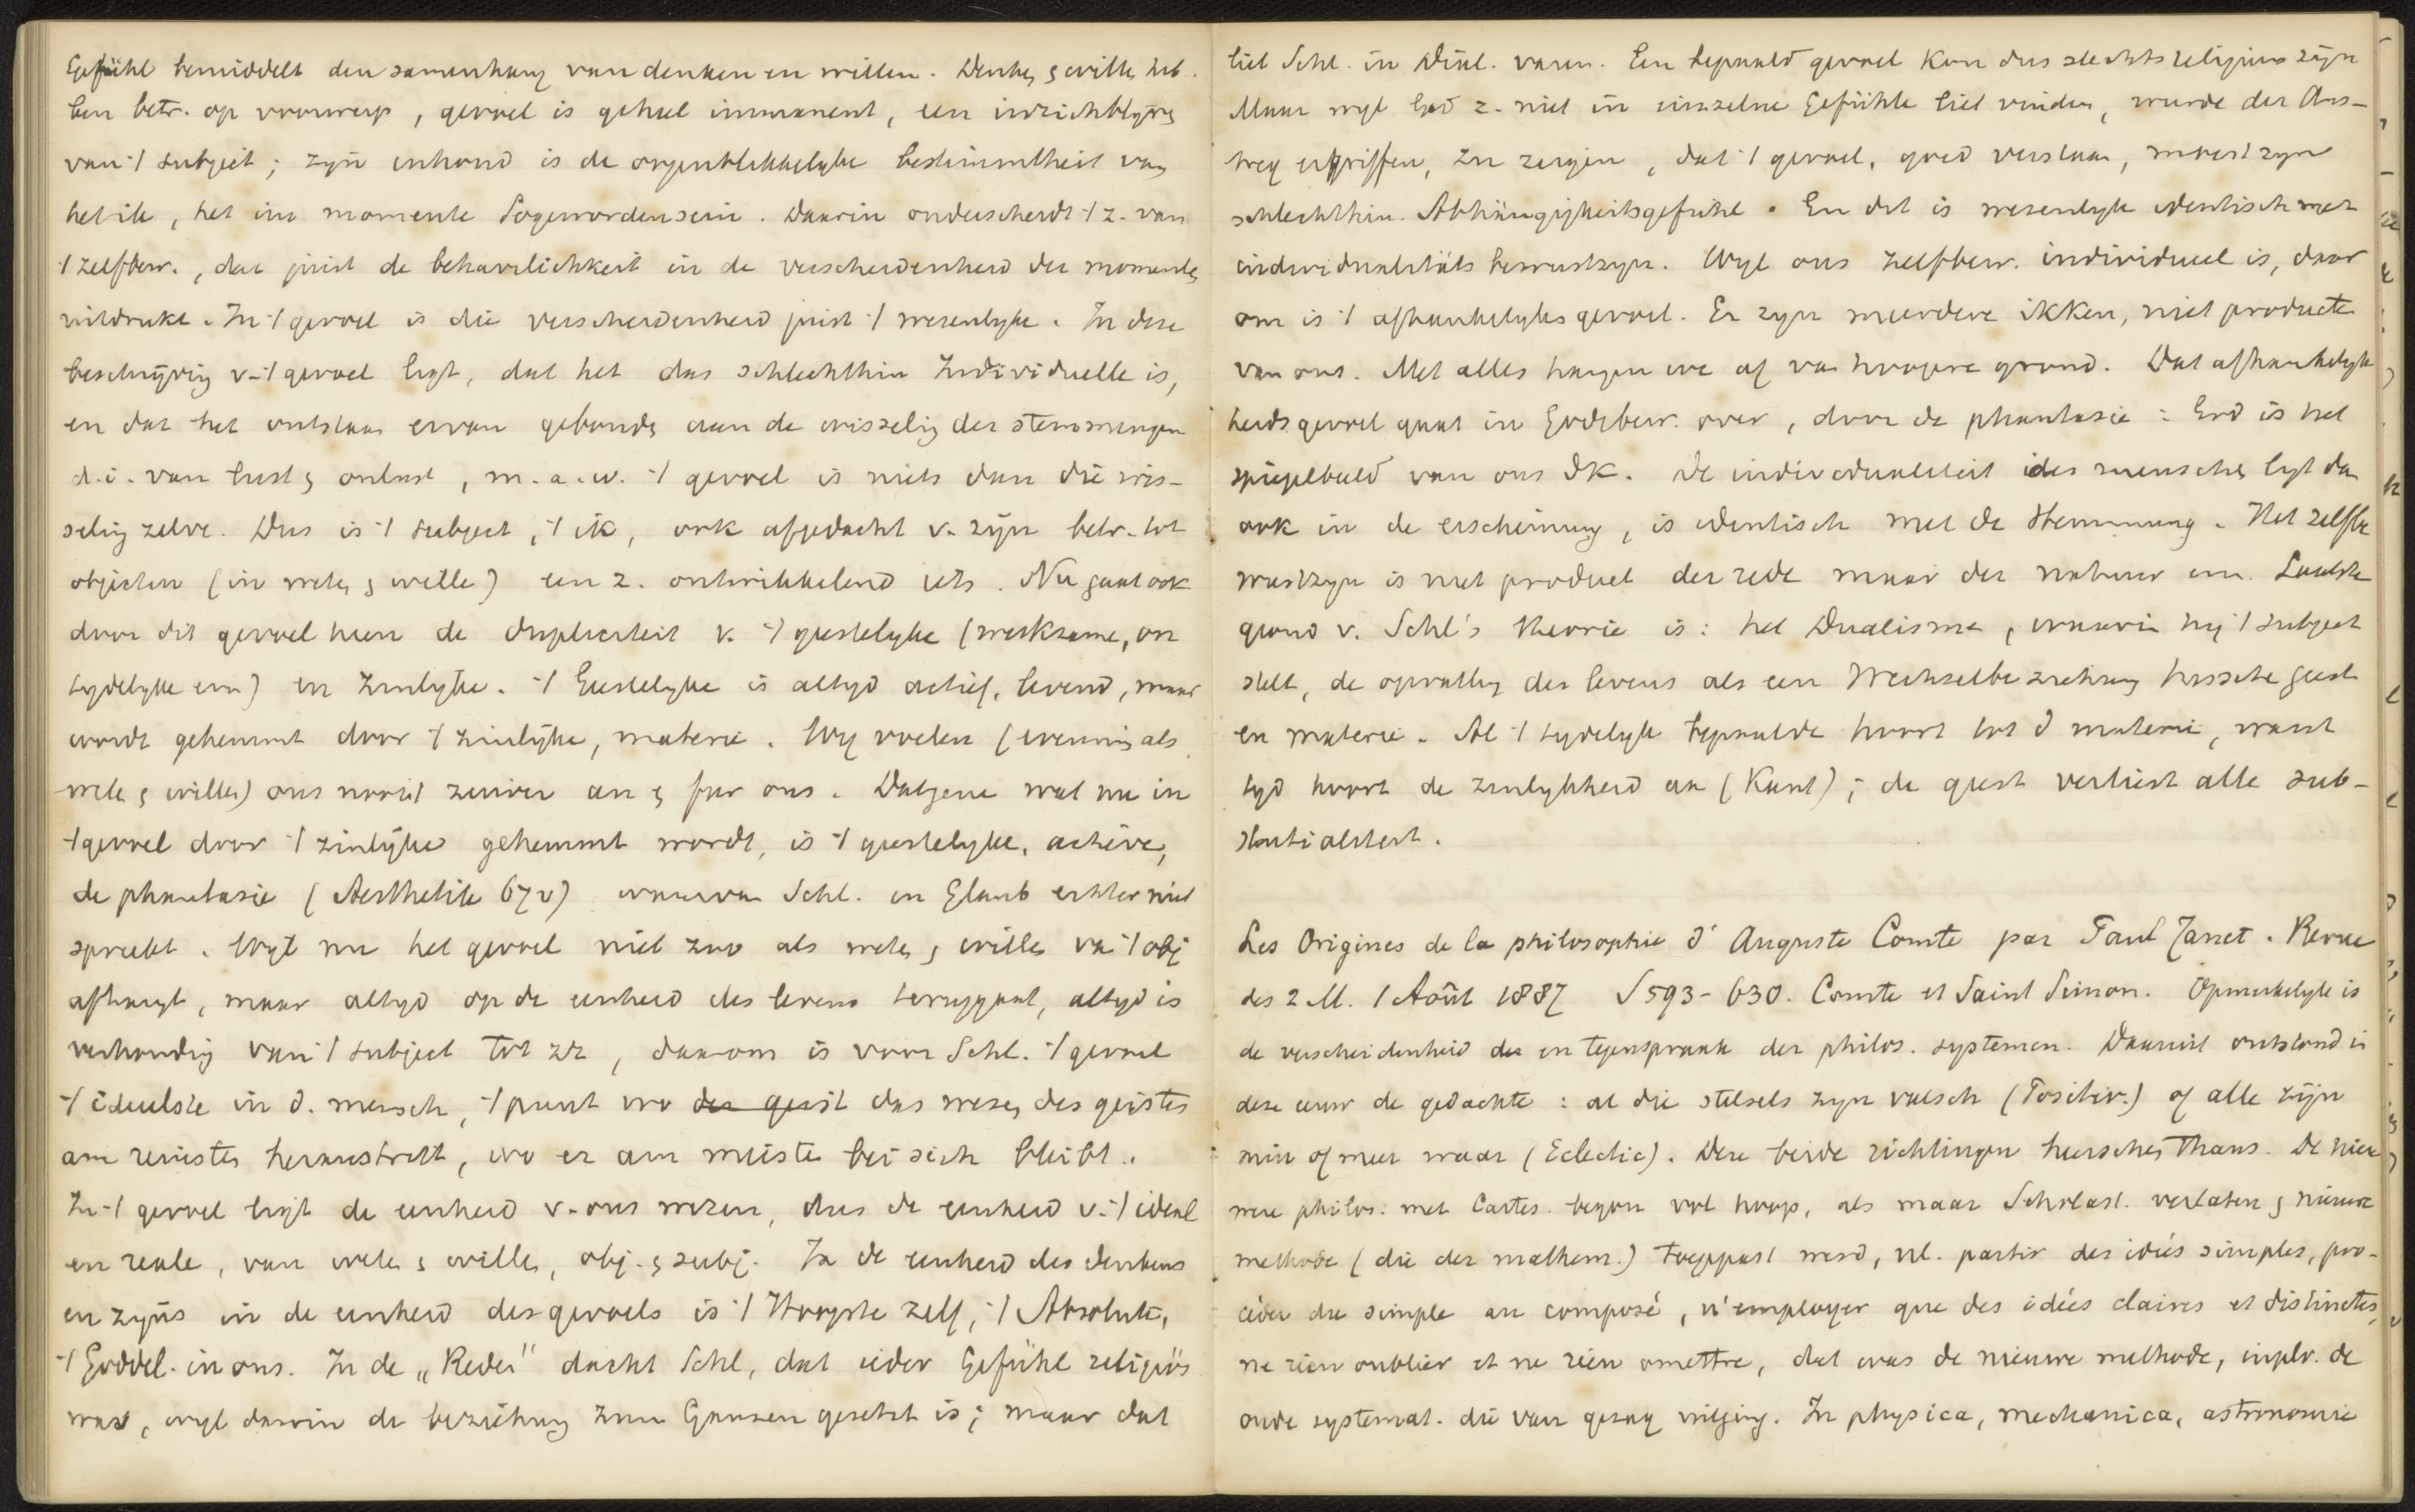 Gefühl bemiddelt den samenhang van denken en willen. Denken & wille heb.
ben betr. op voorwerp, gevoel is geheel immanent, een inzichblijven
van 't subject; zijn inhoud is de oogenblikkelyke bestimmtheit van
het ik, het im momente Sogewordensein. Daarin onderscheidt 't z. van
't zelfbew., dat juist de beharrlichkeit in de verscheidenheid der momenten
uitdrukt. In 't gevoel is die verscheidenheid juist 't wezenlyke. In deze
beschrijving v. 't gevoel ligt, dat het das schlechthin Individuelle is,
en dat het ontstaan ervan gebonden aan de wisseling der stemmingen
d.i. van lust & onlust, m.a.w. 't gevoel is niets dan die wis-
seling zelve. Dus is 't subject, 't ik, ook afgedacht v. zijn betr. tot
objecten (in weten & wille) een z. ontwikkelend iets. Nu gaat ook
door dit gevoel heen de dupliciteit v. 't geestelyke (werkzame, on
tydelyke enz) en zinlyke. 't Geestelyke is altyd actief, levend, maar
wordt gehemmt door 't zinlijke, materie. Wy voelen (evenmin als
weten & willen) ons nooit zuiver an & für ons. Datgene wat nu in
't gevoel door 't zinlijke gehemmt wordt, is 't geestelyke, actieve,
de phantasie (Aesthetik 67 v) waarvan Schl. in Glaub. echter niet
spreekt. Wyl nu het gevoel niet zoo als weten & willen van 't obj
afhangt, maar altyd op de eenheid des levens teruggaat, altyd is
verhouding van 't subject tot zz, daarom is voor Schl. 't gevoel
't ideeelste in d. mensch, 't punt wo der geist das wesen des geistes
am reinsten heraustritt, wo er am meisten bei sich bleibt.
In 't gevoel ligt de eenheid v. ons wezen, dus de eenheid v. 't ideal
en reale, van weten & willen, obj. & subj. In de eenheid des denkens
en zijns in de eenheid des gevoels is 't Hoogste zelf, 't Absolute,
't Goddel. in ons. In de „Reden" dacht Schl, dat ieder Gefühl religiös
was, wyl daarin de beziehung zum Ganzen gesetzt is; maar dat
liet Schl. in Dial. varen. Een bepaald gevoel kon dus slechts religieus zijn
Maar wyl God z. niet in einzelne Gefühle liet vinden, werde der Aus-
weg ergriffen, zu zeigen, dat 't gevoel, goed verstaan, moest zyn
schlechthin. Abhängigkeitsgefühl. En dit is wezenlyk identisch met
individualitäts bewustzyn. Wyl ons zelfbew. individueel is, daar
om is 't afhankelyksgevoel. Er zyn meerdere ikken, niet producten
van ons. Met alles hangen we af van hoogere grond. Dat afhankelyk
heidsgevoel gaat in Godsbew. over, door de phantasie: God is het
spiegelbeeld van ons Ik. De individualiteit ieder menschen ligt dan
ook in de erscheinung, is identisch met de Stemmung. Het zelfbe
wustzyn is niet product der rede maar der natuur enz. Laatste
grond v. Schl's theorie is: het Dualisme, waarin hij 't subject
stelt, de opvatting des levens als een Wechselbeziehung tussche geest
en materie. Al 't tydelyk bepaalde hoort tot d materie, want
tyd hoort de zinlykheid an (Kant); de geest verliest alle sub-
stantialiteit.
Les Origines de la philosophie d' Auguste Comte par Paul Janet. Revue
des 2 M. 1 Août 1887 S 593-630. Comte et Saint Simon. Opmerkelyk is
de verscheidenheid der en tegenspraak der philos. systemen. Daaruit ontstond in
deze eeuw de gedachte: al die stelsels zyn valsch (Positiv.) of alle zijn
min of meer waar (Eclectic). Deze beide richtingen heerschen thans. De nieu
were philos. met Cartes. begon vol hoop, als maar Scholast. verlaten & nieuwe
methode (die der mathem.) toegepast werd, nl. partir des idées simples, pro-
céder du simple au composé, n'employer que des idées claires et distinctes,
ne rien oublier et ne rien omettre, dat was de nieuwe methode, inplv. de
oude systemat. die van gezag uitging. In physica, mechanica, astronomie